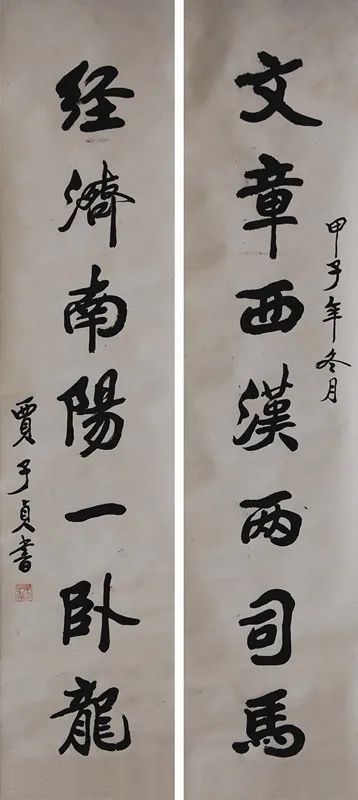 甲子年冬月
文章西漢两司馬
经濟南陽一卧龍
賈子貞書